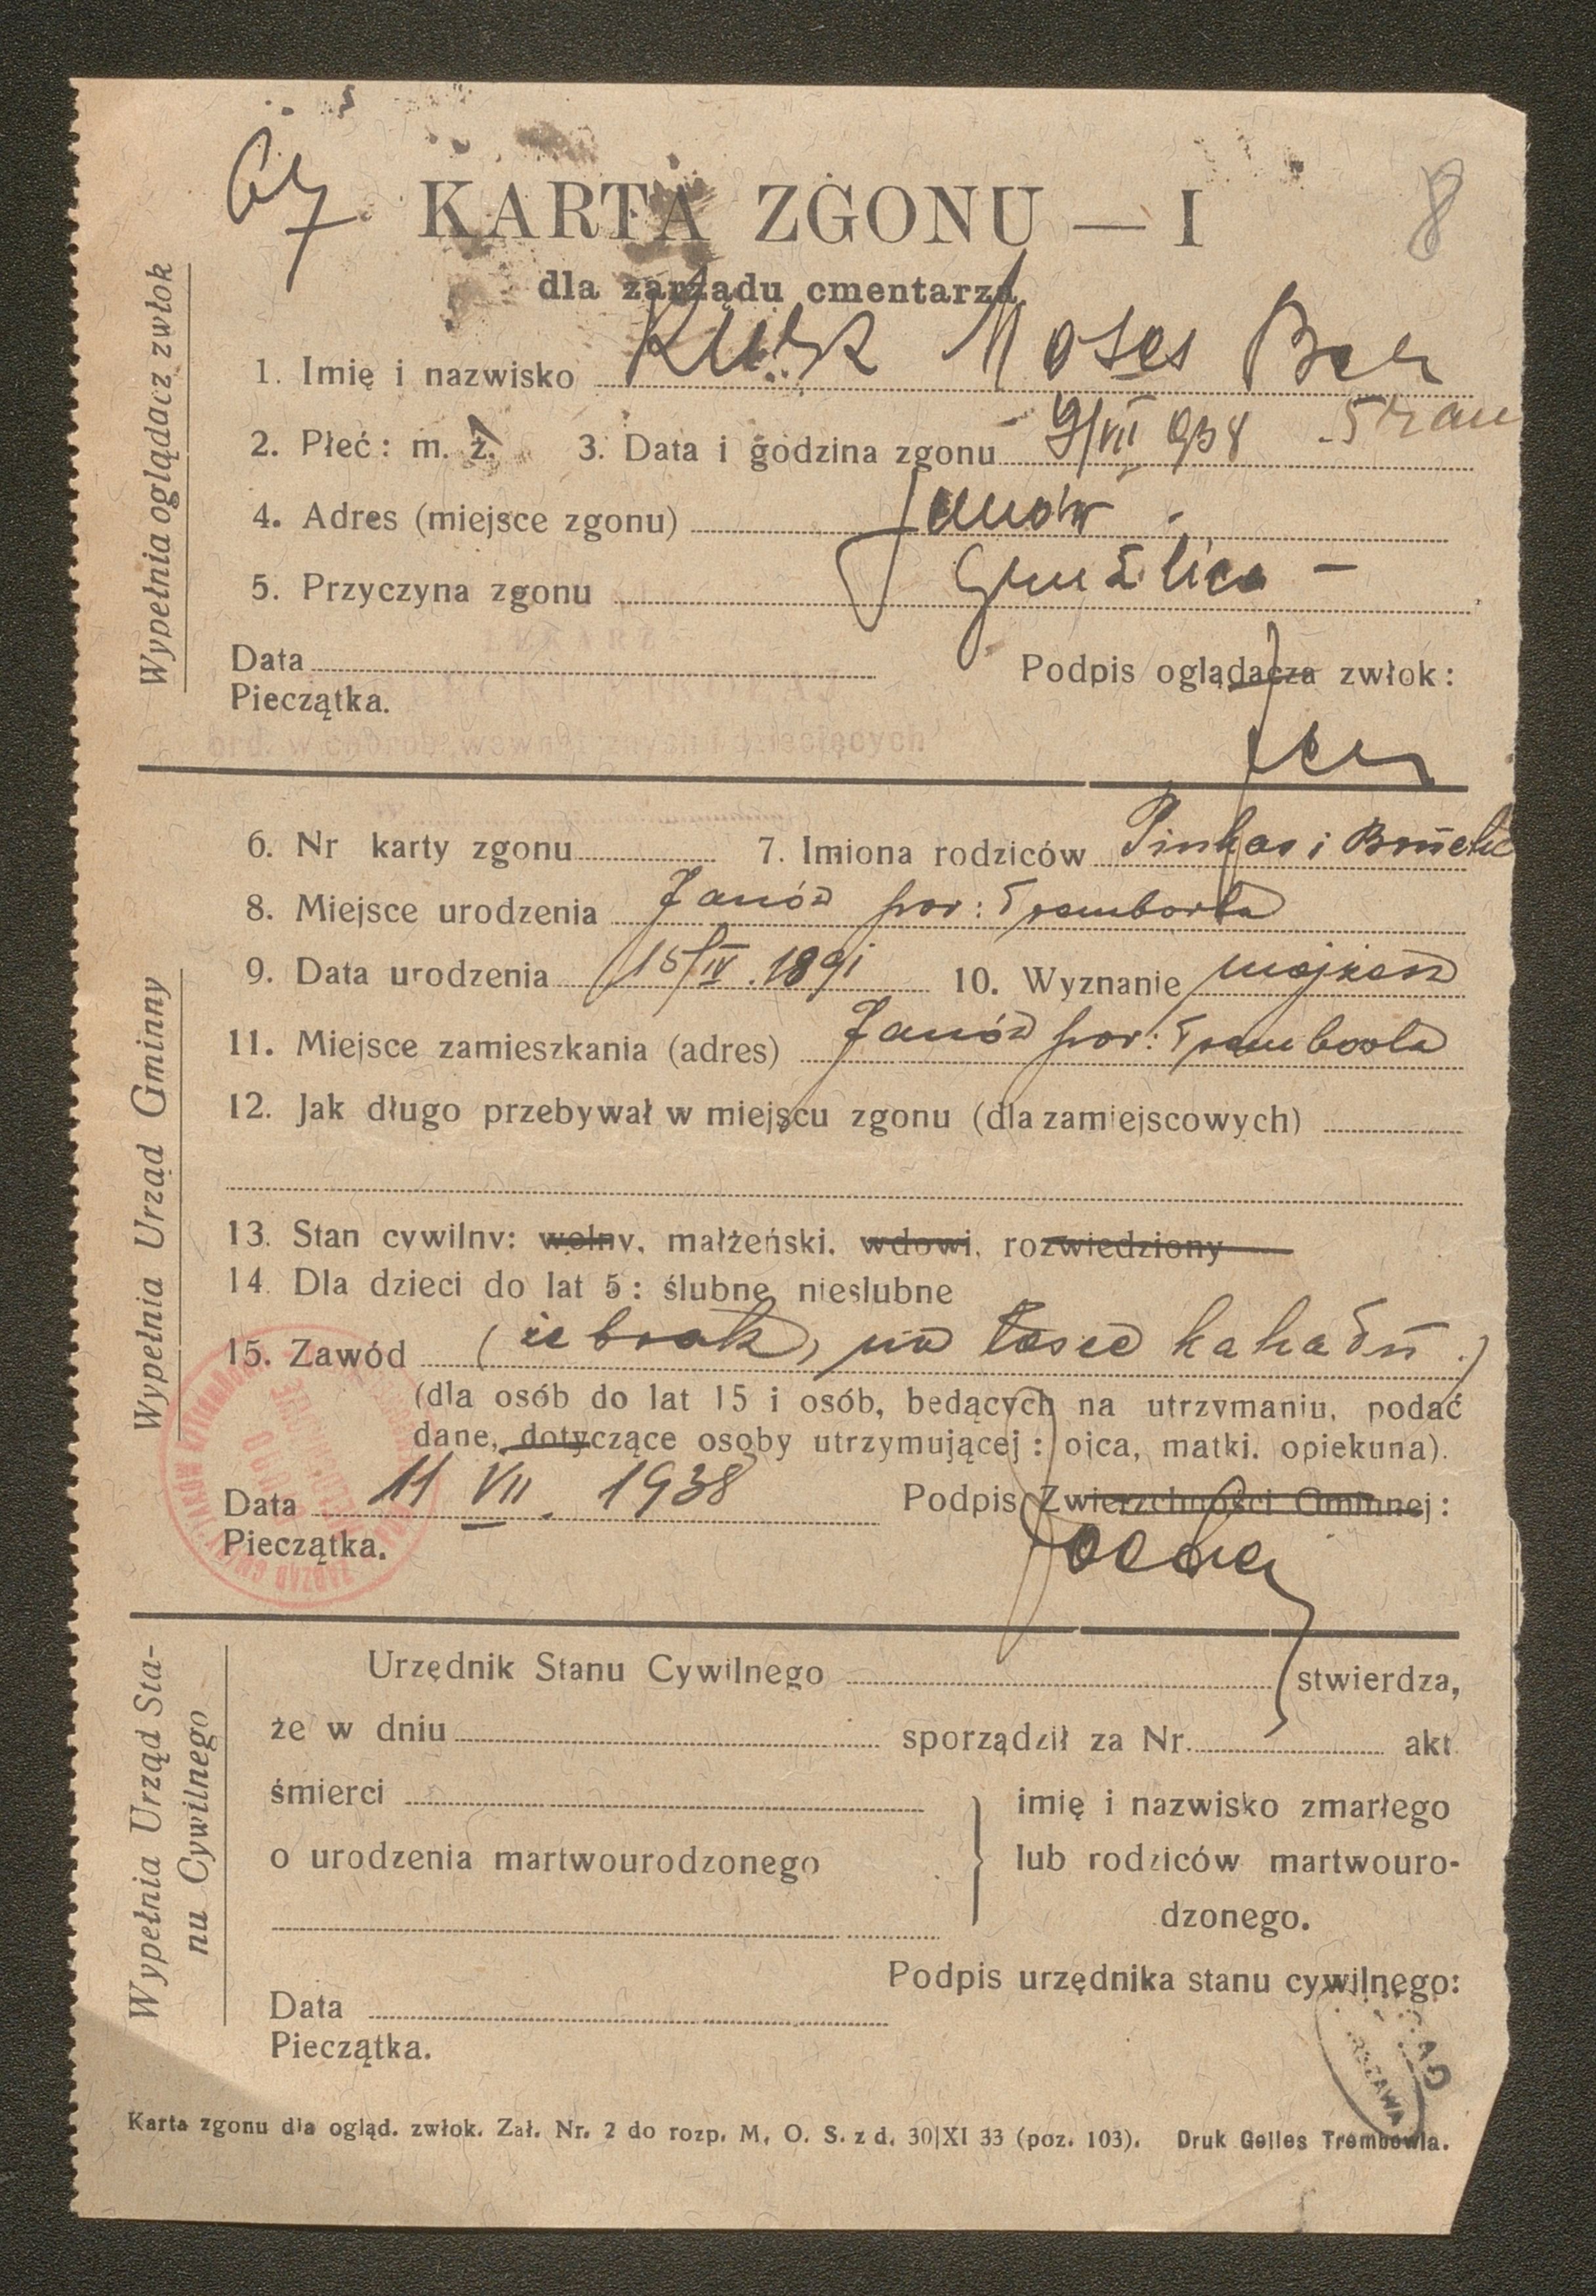 8
KARTA ZGONU — I
dla zarządu cmentarza
Wypełnia oglądacz zwłok
1. Imię i nazwisko Moses Ber
2. Płeć: m. ż. 3. Data i godzina zgonu 9/VII 938 5 rano
4. Adres (miejsce zgonu) Janów
5. Przyczyna zgonu Gruźlica —
Data
Podpis oglądacza zwłok:
Pieczątka.
ord. w chorob. wewnętrznych i dziecięcych
6. Nr karty zgonu 7. Imiona rodziców Pinkas i
8. Miejsce urodzenia Janów pow: Trembowla
9. Data urodzenia 15/IV. 1891 10. Wyznanie mojżesz
Wypełnia Urząd Gminny
11. Miejsce zamieszkania (adres) Janów pow: Trembowla
12. Jak długo przebywał w miejscu zgonu (dla zamiejscowych)
13. Stan cywilny: wolny, małżeński, wdowi, rozwiedziony
14. Dla dzieci do lat 5: ślubne nieslubne
15. Zawód (żebrak, na łasce kahału.)
(dla osób do lat 15 i osób, bedących na utrzymaniu, podać
dane, dotyczące osoby utrzymującej: ojca, matki, opiekuna).
Data 11 VII. 1938 Podpis Zwierzchności Gminnej:
Pieczątka.
Wypełnia Urząd Sta-
nu Cywilnego
Urzędnik Stanu Cywilnego stwierdza,
że w dniu sporządził za Nr. akt
śmierci } imię i nazwisko zmarłego
o urodzenia martwourodzonego lub rodziców martwouro-
dzonego.
Podpis urzędnika stanu cywilnego:
Data
Pieczątka.
Karta zgonu dla ogląd. zwłok. Zał. Nr. 2 do rozp. M. O. S. z d. 30|XI 33 (poz. 103). Druk Gelles Trembowla.